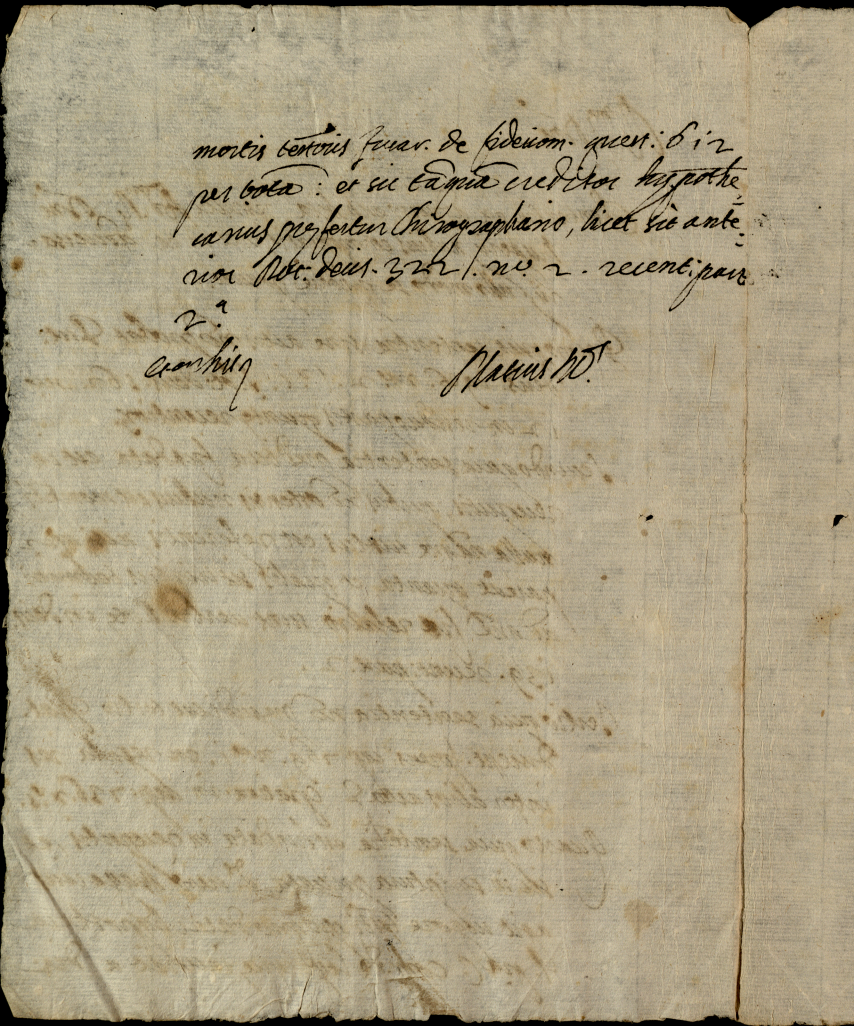 mortis tẽtoris fusar. de fideicom. quest: 612
per totã: et sic tãquã creditor hypothe=
carius prefertur chirographario, licet sit ante=
rior Rot. decis. 322. nu. 2. recent: part
2.ª
Blasius